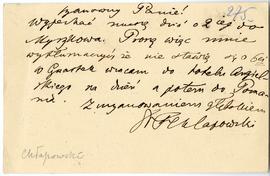 Szanowny Panie
225
Wyjechać muszę dziś o 2 ej do
Myszkowa. Proszę więc mnie
wytłumaczyć że nie stawię się o 6 ej
w Czwartek wracam do hotelu Angiel
skiego na dzień a potem do Pozna
nia. Z uszanowaniem
Chłapowski
Chłapowski